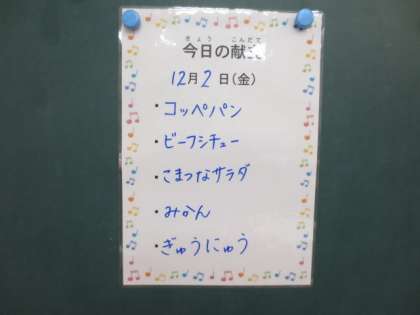 きょう こんだて
今日の献立
12月2日(金)
・コッペパン
・ビーフシチュー
・こまつなサラダ
・みかん
・ぎゅうにゅう